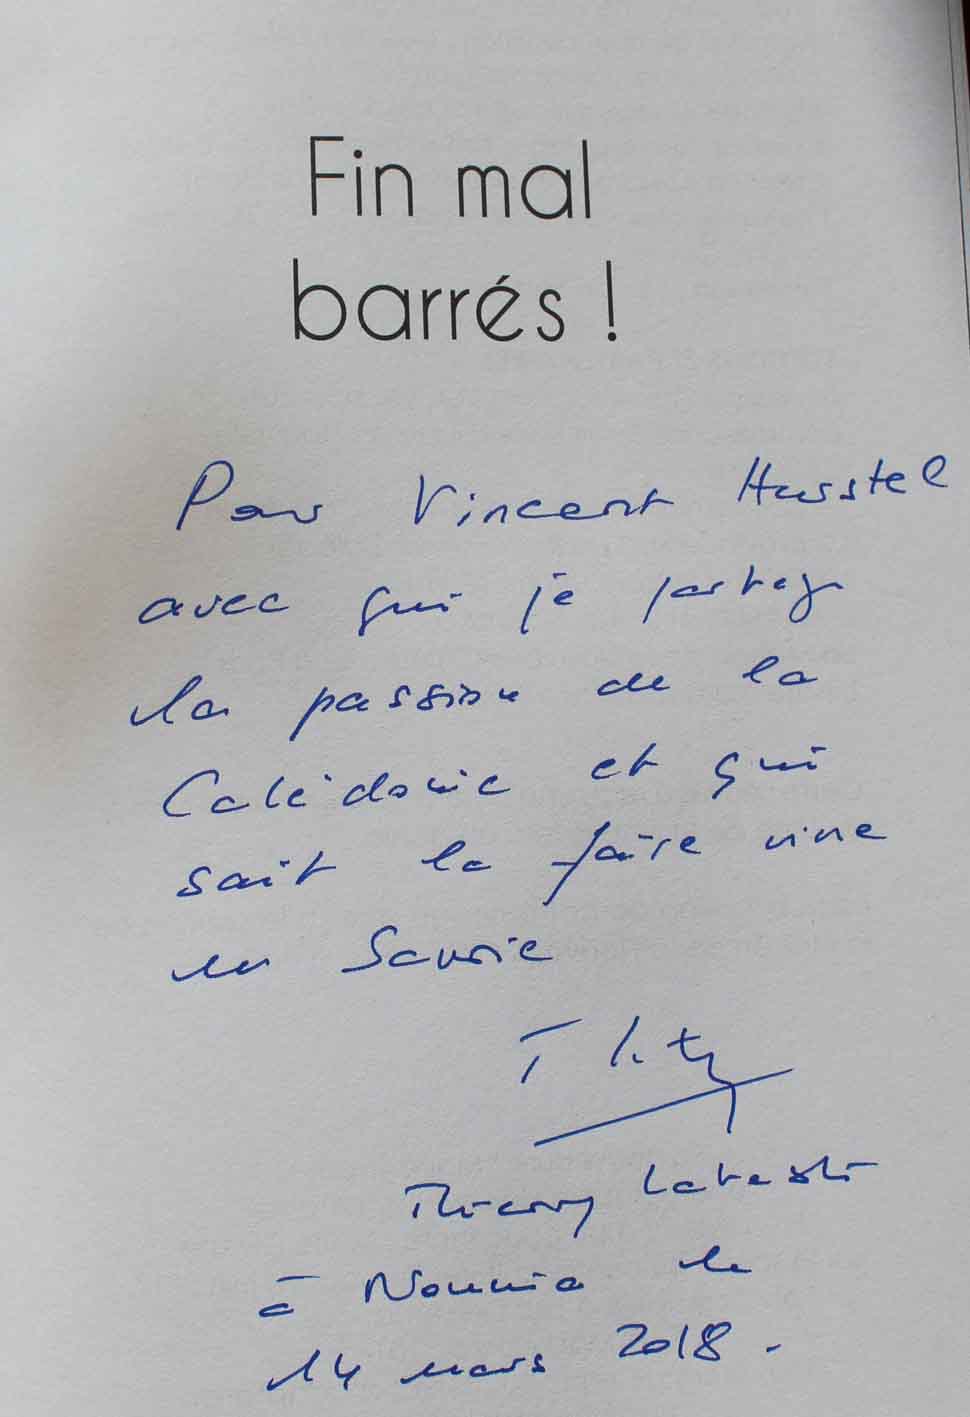 Fin mal
barrés !
Pour Vincent Hurstel
avec qui je partage
la passion de la
Calédonie et qui
sait la faire vivre
en Savoie
Thierry
à Nouméa le
14 mars 2018.